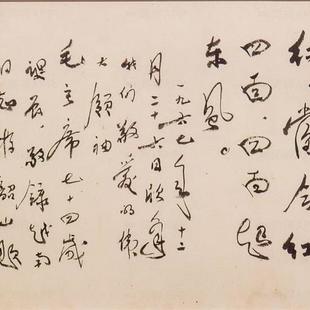 红
四面,四面起
东风。
一九六七年十二
月二十六日欣逢
我们敬爱的伟
大领袖
毛主席七十四岁
诞辰,敬录越南
同志游韶山